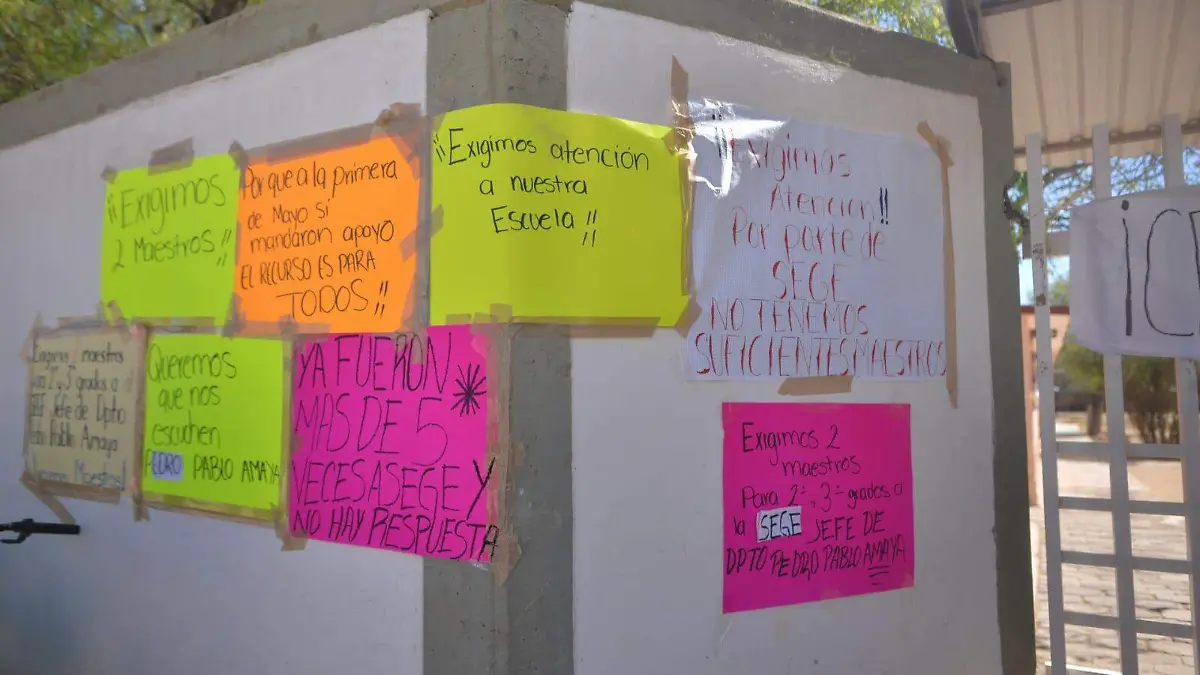 ¡¡Exigimos
2 Maestros!!
Por que a la primera
de Mayo si
mandaron apoyo
EL RECURSO ES PARA
TODOS!!
¡¡Exigimos atención
a nuestra
Escuela!!
Exigimos
Atención!!
Por parte de
SEGE
NO TENEMOS
SUFICIENTES MAESTROS
maestros
grados a
Jefe de Dpto
Pablo Amaya
Maestros!
Queremos
que nos
escuchen
PEDRO PABLO AMAYA
YA FUERON
MAS DE 5
VECES A SEGE Y
NO HAY RESPUESTA
Exigimos 2
maestros
Para 2°, 3° grados a
la SEGE JEFE DE
DPTO PEDRO PABLO AMAYA